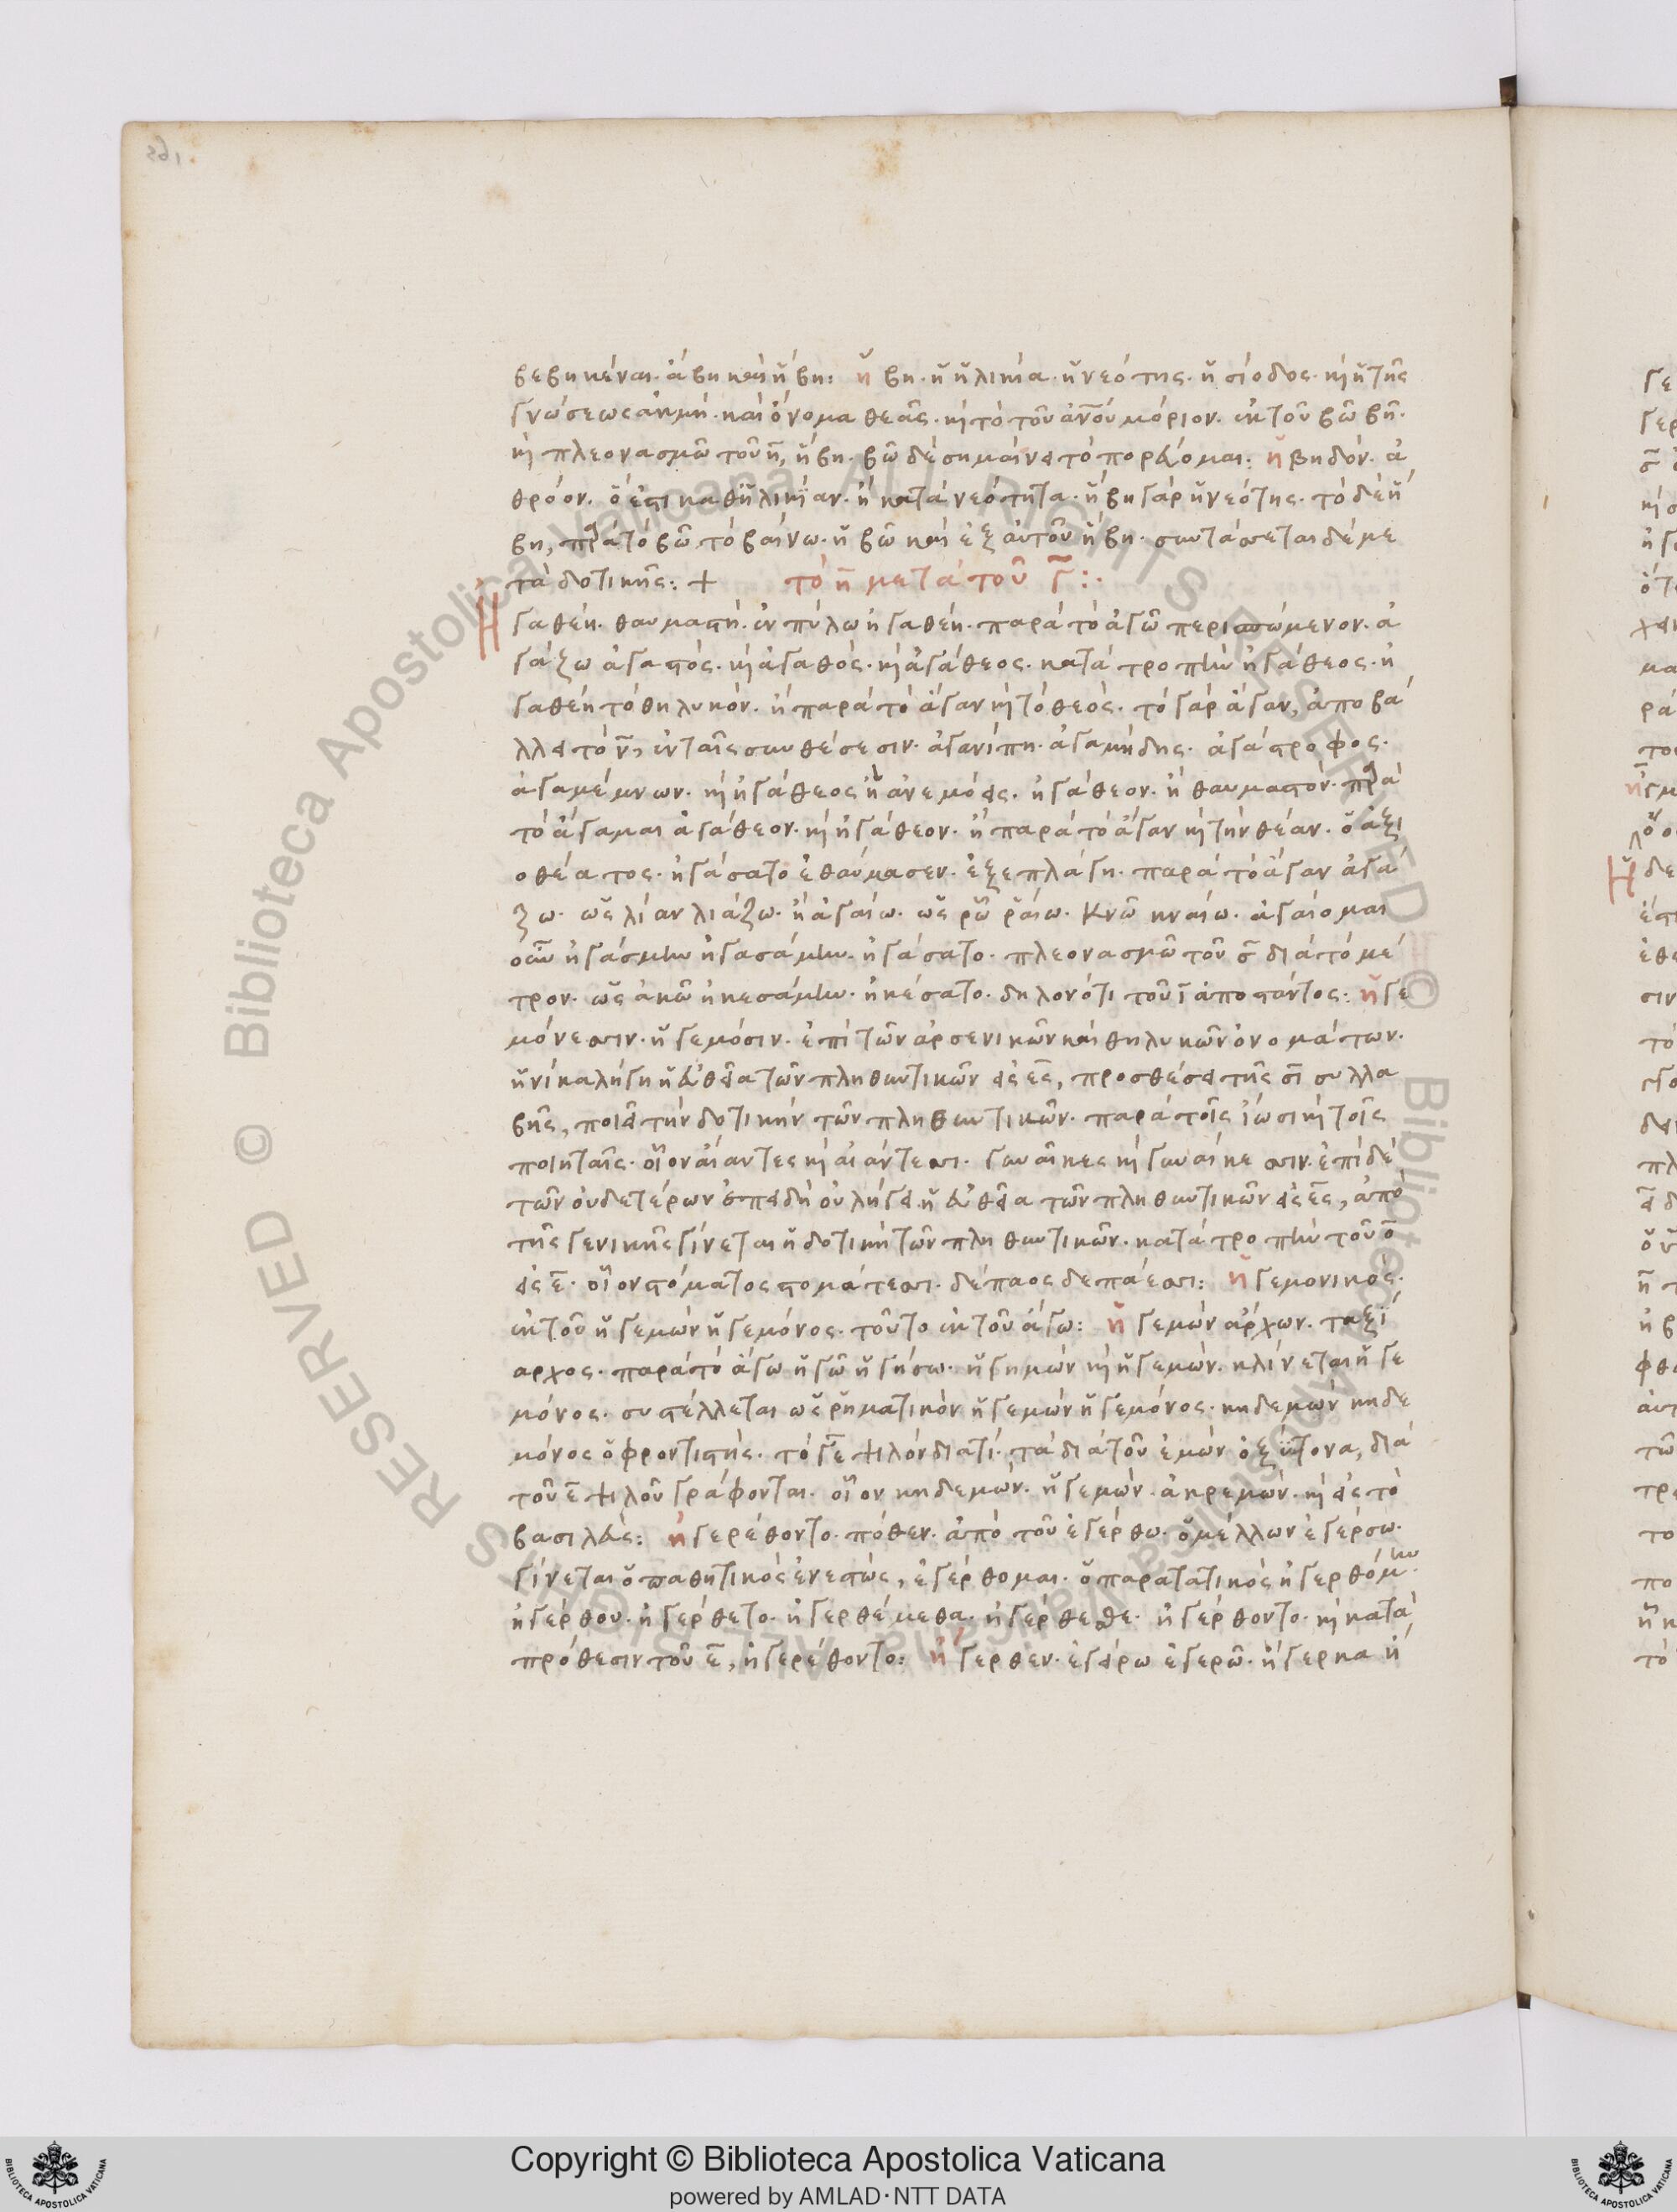 βεβηκέναι. ἄβη καὶ ἥβη: ἥβη. ἡ ἡλικία. ἡ νεότης. ἡ σίοδος. κὶ ἡ τῆς
γνώσεως ἀκμή. καὶ ὄνομα θεᾶς. κὶ τὸ τοῦ ἀν̅ου μόριον. ἐκ τοῦ βῶ βῆ.
κὶ πλεονασμῶ τοῦ η̅, ἥβη. βῶ δὲ σημαίνει τὸ πορεύομαι: ἡβηδόν. ἀ
θρόον. ὅ ἐστι καθ' ἡλικίαν. ἢ κατὰ νεότητα. ἥβη γὰρ ἡ νεότης. τὸ δὲ ἥ
βη, παρὰ τὸ βῶ τὸ βαίνω. ἡ βῶ καὶ ἐξ αὐτοῦ ἥβη. συντάσσεται δὲ με
τὰ δοτικῆς: + τὸ η̅ μετὰ τοῦ γ̅:.
Ηγαθέη. θαυμαστή. ἐν πύλω ἠγαθέη. παρὰ τὸ ἀγῶ περισπώμενον. ἀ
γάζω ἀγαστός. κὶ ἀγαθός. κὶ ἀγάθεος. κατὰ τροπὴν ἠγάθεος. ἠ
γαθέη τὸ θηλυκόν. ἢ παρὰ τὸ ἄγαν κὶ τὸ θεός. τὸ γὰρ ἄγαν, ἀποβά
λλει τὸ ν̅, ἐν ταῖς συνθέσεσιν. ἀγανίπη. ἀγαμήδης. ἀγάστροφος.
ἀγαμέμνων. κὶ ἠγάθεος ἢ ἀνεμόεις. ἠγάθεον. ἢ θαυμαστόν. παρὰ
τὸ ἄγαμαι ἀγάθεον. κὶ ἠγάθεον. ἢ παρὰ τὸ ἄγαν κὶ τὴν θέαν. ὁ ἀξι
οθέατος. ἠγάσατο ἐθαύμασεν. ἐξεπλάγη. παρὰ τὸ ἄγαν ἀγά
ζω. ὡς λίαν λιάζω. ἢ ἀγαίω. ὡς ῥῶ ῥαίω. κνῶ κναίω. ἀγαίομαι
οὖν ἠγάσμην ἠγασάμην. ἠγάσατο. πλεονασμῶ τοῦ σ̅ διὰ τὸ μέ
τρον. ὡς ἀκῶ ἠκεσάμην. ἠκέσατο. δηλονότι τοῦ ι̅ ἀποστάντος: ἡγε
μόνεσσιν. ἡγεμόσιν. ἐπὶ τῶν ἀρσενικῶν καὶ θηλυκῶν ὀνομάτων.
ἡνίκα λήγη ἡ εὐθεῖα τῶν πληθυντικῶν εἰς ες̅, προσθέσει τῆς σι̅ συλλα
βῆς, ποιεῖ τὴν δοτικὴν τῶν πληθυντικῶν. παρὰ τοῖς ἴωσι κὶ τοῖς
ποιηταῖς. οἷον αἴαντες κὶ αἰάντεσσι. γυναῖκες κὶ γυναίκεσσιν. ἐπὶ δὲ
τῶν οὐδετέρων ἐπειδὴ οὐ λήγει ἡ εὐθεῖα τῶν πληθυντικῶν εἰς ες̅, ἀπὸ
τῆς γενικῆς γίνεται ἡ δοτικὴ τῶν πληθυντικῶν. κατὰ τροπὴν τοῦ ο̅
εἰς ε̅. οἷον στόματος στομάτεσσι. δέπαος δεπάεσσι: ἡγεμονικός.
ἐκ τοῦ ἡγεμὼν ἡγεμόνος. τοῦτο ἐκ τοῦ ἄγω: ἡγεμὼν ἄρχων. ταξί
αρχος. παρὰ τὸ ἄγω ἡγῶ ἡγήσω. ἡγημὼν κὶ ἡγεμών. κλίνεται ἡγε
μόνος. συστέλλεται ὡς ῥηματικὸν ἡγεμὼν ἡγεμόνος. κηδεμὼν κηδε
μόνος ὁ φροντιστής. τὸ γε̅ ψιλὸν διατί. τὰ διὰ τοῦ εμων ὀξύτονα, διὰ
τοῦ ε̅ ψιλοῦ γράφονται. οἷον κηδεμών. ἡγεμών. ἀκρεμών. κὶ εἰς τὸ
βασιλεύς: ἠγερέθοντο. πόθεν. ἀπὸ τοῦ ἐγέρθω. ὁ μέλλων ἐγέρσω.
γίνεται ὁ παθητικὸς ἐνεστώς, ἐγέρθομαι. ὁ παρατατικὸς ἠγερθόμην.
ἠγέρθου. ἠγέρθετο. ἠγερθέμεθα. ἠγέρθεσθε. ἠγέρθοντο. κὶ κατὰ
πρόθεσιν τοῦ ε̅, ἠγερέθοντο: ἤγερθεν. ἐγείρω ἐγερῶ. ἤγερκα ἤ